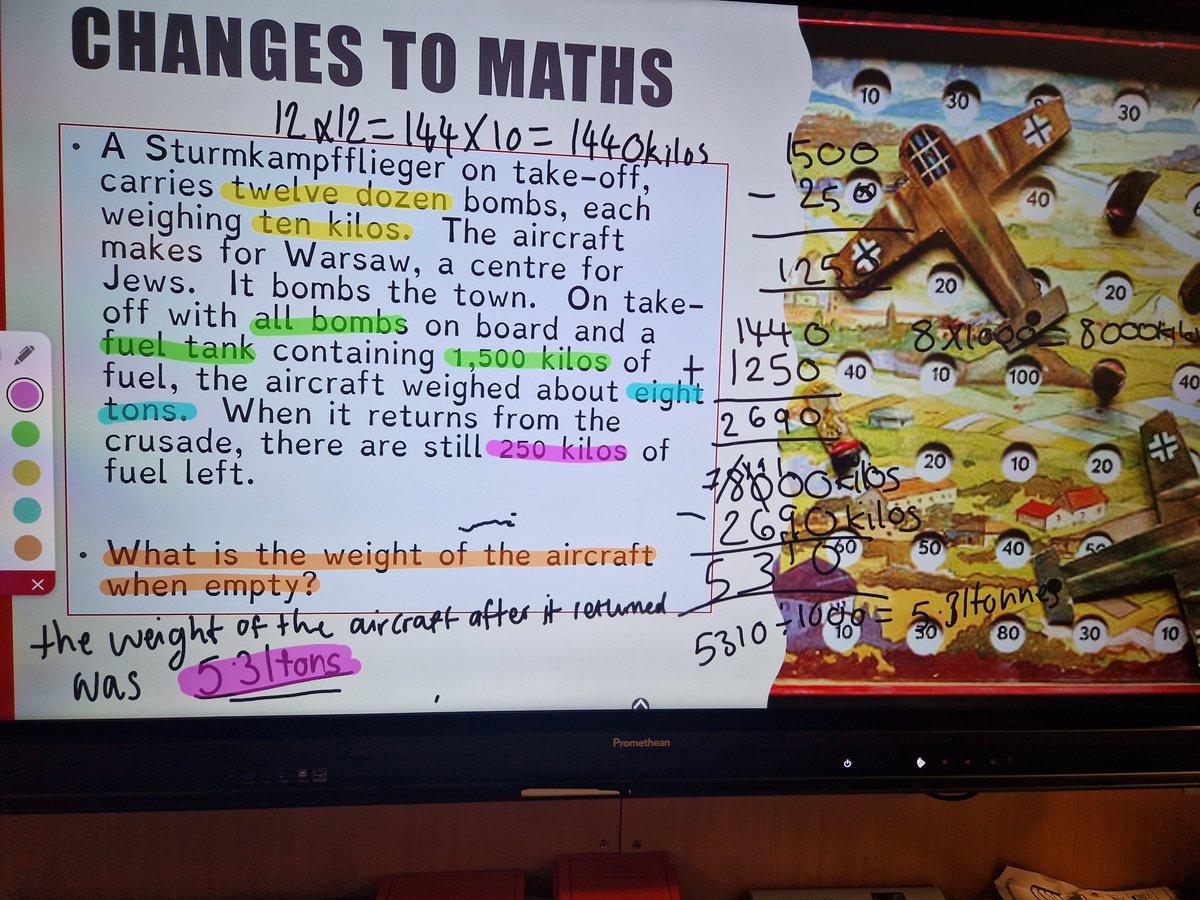 CHANGES TO MATHS
12 x 12 = 144 x 10 = 1440kilos
• A Sturmkampfflieger on take-off,
carries twelve dozen bombs, each
weighing ten kilos. The aircraft
makes for Warsaw, a centre for
Jews. It bombs the town. On take-
off with all bombs on board and a
fuel tank containing 1,500 kilos of
fuel, the aircraft weighed about eight
tons. When it returns from the
crusade, there are still 250 kilos of
fuel left.
• What is the weight of the aircraft
when empty?
the weight of the aircraft after it returned
was 5.31tons
1500
- 250
1250
1440
+ 1250
2690
8000kilos
- 2690kilos
5310
5310 ÷ 1000 = 5.31tonnes
8x1000 = 8000kilo
10
30
30
40
20
20
40
10
100
40
20
10
20
60
50
40
50
10
50
80
30
10
Promethean